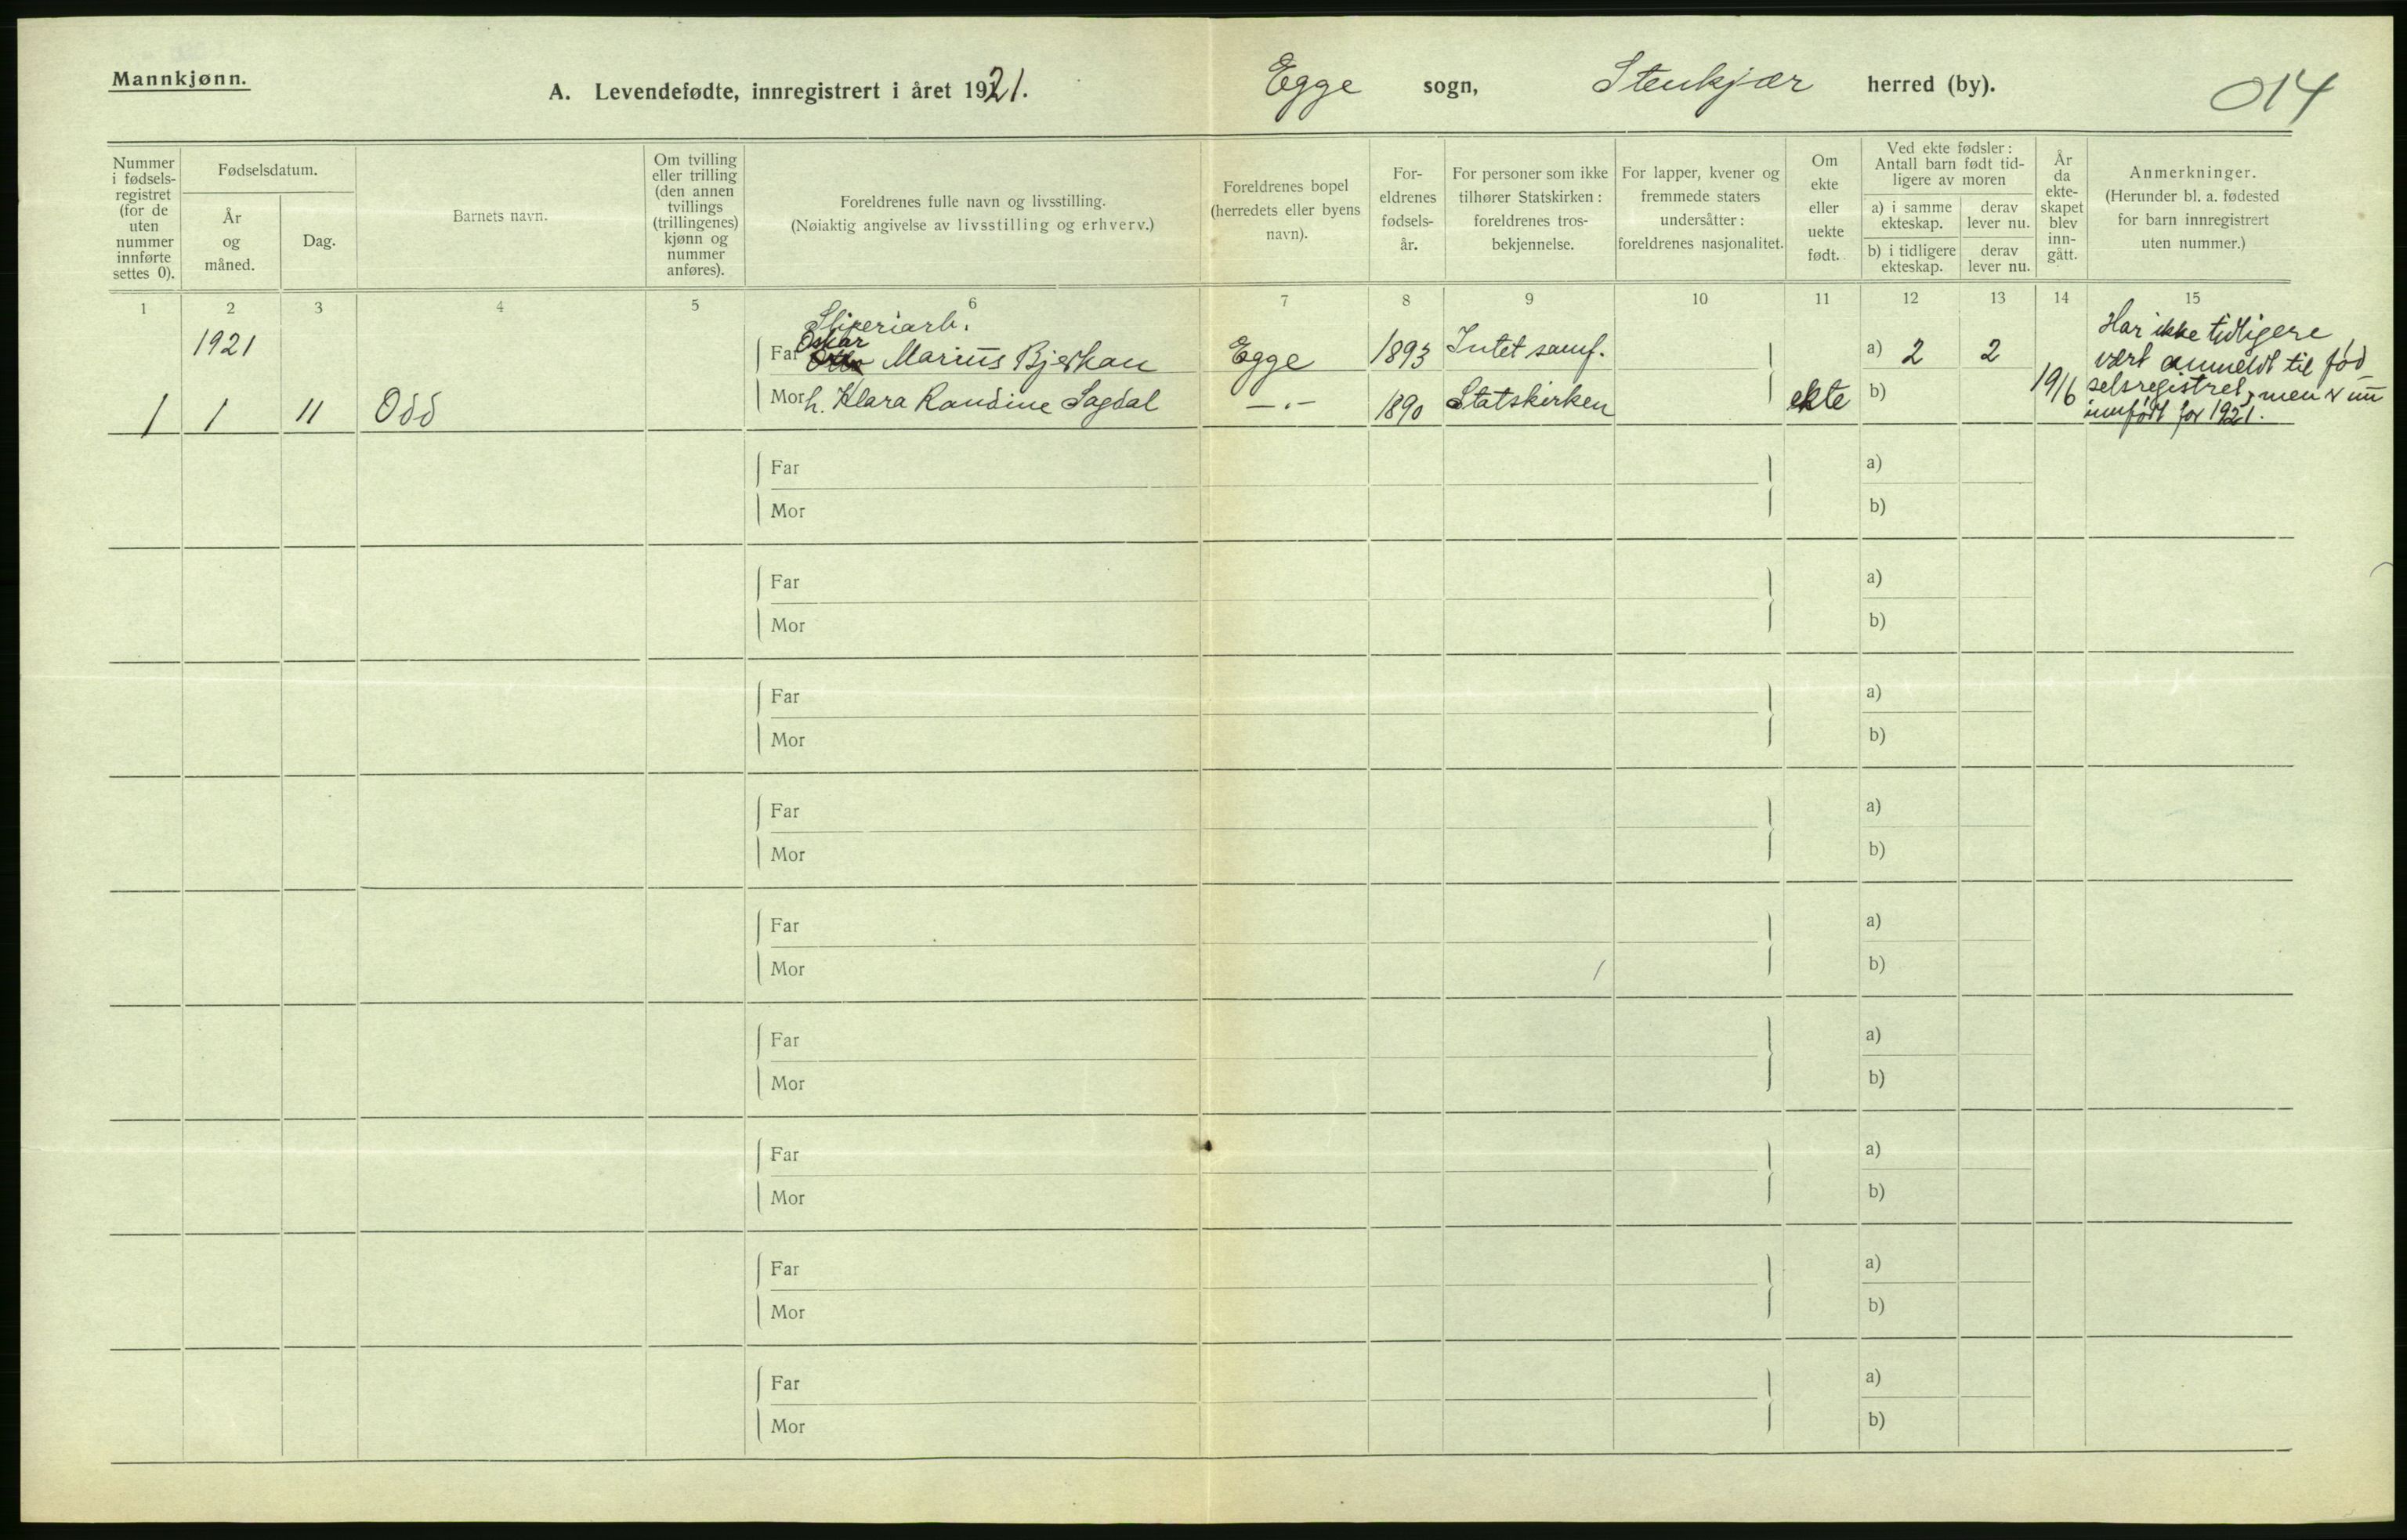 Mannkjønn.
A. Levendefødte, innregistrert i året 1921.
Egge sogn, Stenkjær herred (by).
014
Nummer i fødsels-registret (for de uten nummer innførte settes 0).
Fødselsdatum.
År og måned.
Dag.
Barnets navn.
Om tvilling eller trilling (den annen tvillings (trillingenes) kjønn og nummer anføres).
Foreldrenes fulle navn og livsstilling.
(Nøiaktig angivelse av livsstilling og erhverv.)
Foreldrenes bopel (herredets eller byens navn).
For-eldrenes fødsels-år.
For personer som ikke tilhører Statskirken: foreldrenes tros-bekjennelse.
For lapper, kvener og fremmede staters undersåtter: foreldrenes nasjonalitet.
Om ekte eller uekte født.
Ved ekte fødsler: Antall barn født tid-ligere av moren
a) i samme ekteskap.
derav lever nu.
b) i tidligere ekteskap.
derav lever nu.
År da ekte-skapet blev inn-gått.
Anmerkninger.
(Herunder bl. a. fødested for barn innregistrert uten nummer.)
1 2 3 4 5 6 7 8 9 10 11 12 13 14 15
Sliperiarb.
Oskar
1921 Far Marius Bjerkan Egge 1893 Intet samf. a) 2 2
1 1 11 Odd Mor h. Klara Randine Sagdal —„— 1890 Statskirken ekte b) 1916
Har ikke tidligere
vært anmeldt til fød
selsregistret, men nu
innført for 1921.
Far a)
Mor b)
Far a)
Mor b)
Far a)
Mor b)
Far a)
Mor b)
Far a)
Mor b)
Far a)
Mor b)
Far a)
Mor b)
Far a)
Mor b)
Far a)
Mor b)